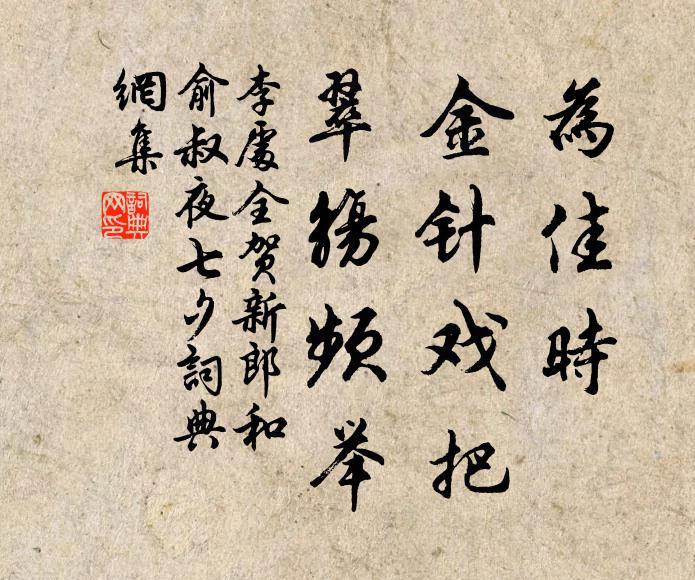 為佳時
金针戏把
翠觞頻举
李處全贺新郎和
俞叔夜七夕詞典
網集
詞典
网印